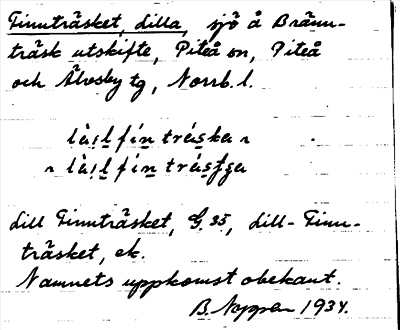 Finnträsket, dilla, sjö å Bränn-
träsk utskifte, Piteå sn, Piteå
och Älvsby tg, Norrb. l.
dill Finnträsket, G. 35, dill-Finn-
träsket, ek.
Namnets uppkomst obekant.
B. 1934.